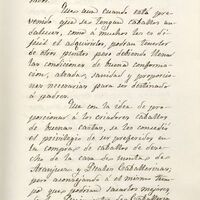 Pues aun cuando está pre-
venido que se tengan caballos an-
daluces, como á muchos les es di-
fícil el adquirirlos, podrán tenerlos
de otros puntos pero deberán llenar
las condiciones de buena conforma-
ción, alzada, sanidad y proporcio-
nes necesarias para ser destinados
á padres.
Que con la idea de pro-
porcionar á los criadores caballos
de buenas castas, se les concedió
el privilegio de ser preferidos en
la compra de caballos de dese-
cho de la casa de monta de
Aranjuez y Reales Caballerizas,
pero
al mismo tiem-
po que podrían